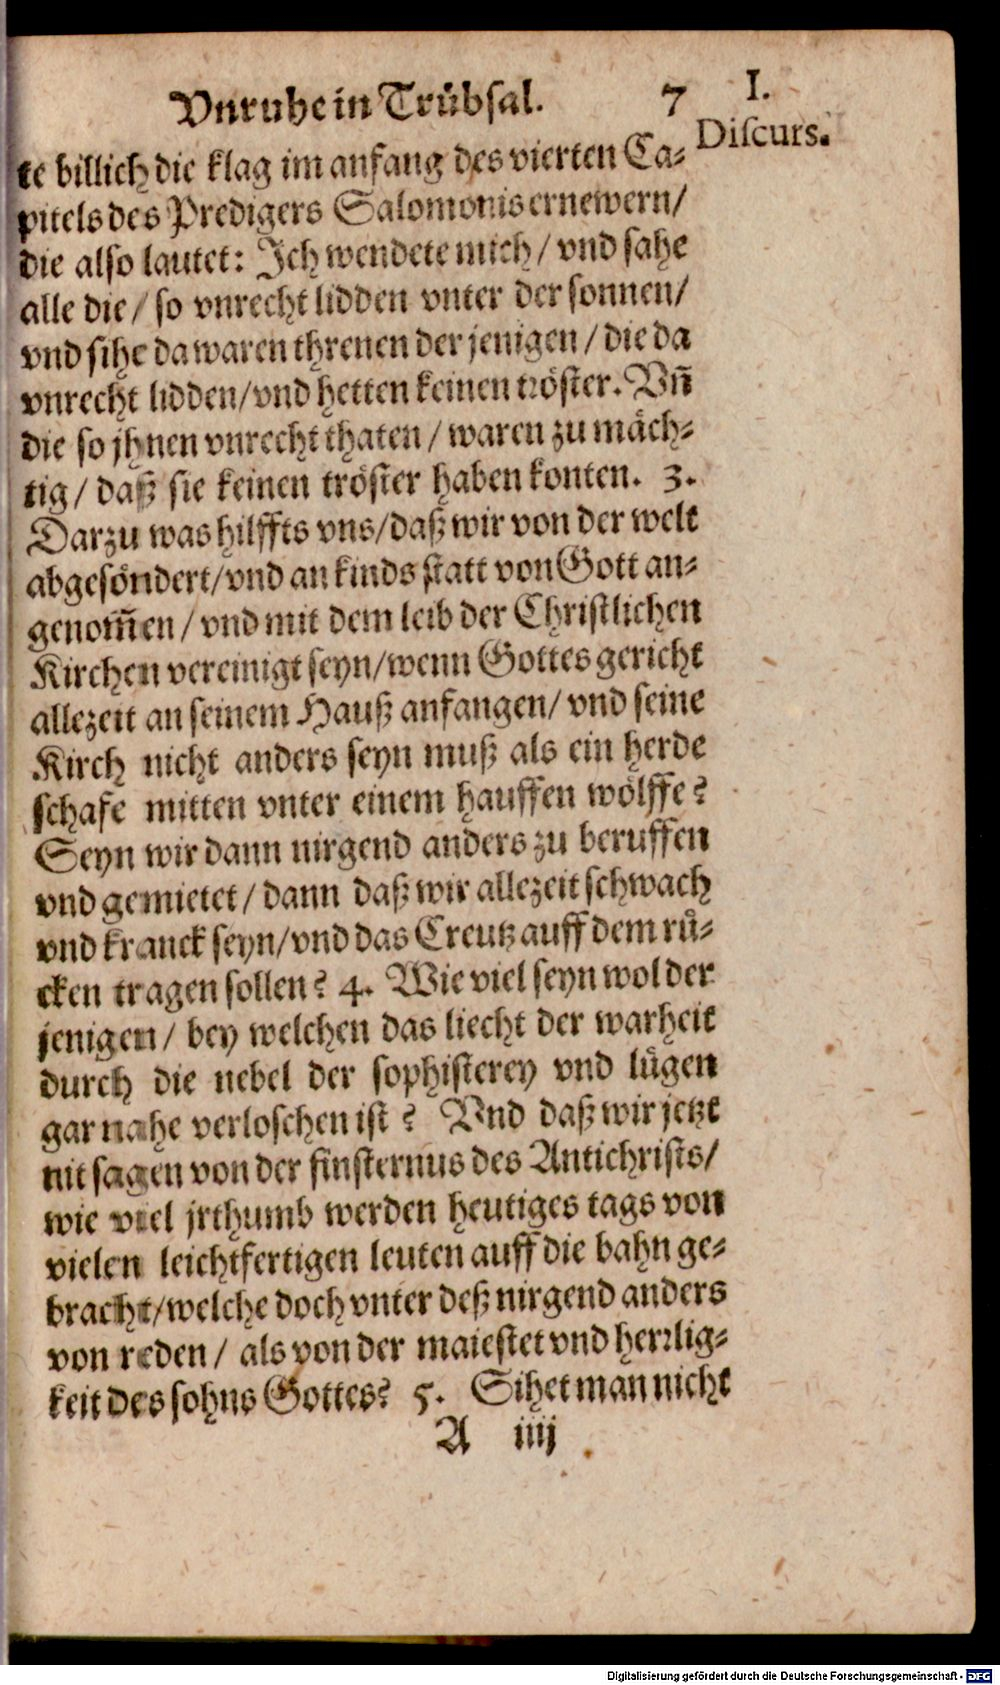 Vnruhe in Trübsal. 7 I.
Discurs.
te billich die klag im anfang des vierten Ca-
pitels des Predigers Salomonis ernewern/
die also lautet: Ich wendete mich/ vnd sahe
alle die/ so vnrecht lidden vnter der sonnen/
vnd sihe da waren threnen der jenigen/ die da
vnrecht lidden/ vnd hetten keinen tröster. Vñ
die so jhnen vnrecht thaten/ waren zu mäch-
tig/ daß sie keinen tröster haben konten. 3.
Darzu was hilffts vns/ daß wir von der welt
abgesöndert/ vnd an kinds statt von Gott an-
genom̃en/ vnd mit dem leib der Christlichen
Kirchen vereinigt seyn/ wenn Gottes gericht
allezeit an seinem Hauß anfangen/ vnd seine
Kirch nicht anders seyn muß als ein herde
schafe mitten vnter einem hauffen wölffe?
Seyn wir dann nirgend anders zu beruffen
vnd gemietet/ dann daß wir allezeit schwach
vnd kranck seyn/ vnd das Creutz auff dem rü-
cken tragen sollen? 4. Wie viel seyn wol der
jenigen/ bey welchen das liecht der warheit
durch die nebel der sophisterey vnd lügen
gar nahe verloschen ist? Vnd daß wir jetzt
nit sagen von der finsternus des Antichrists/
wie viel jrthumb werden heutiges tags von
vielen leichtfertigen leuten auff die bahn ge-
bracht/ welche doch vnter deß nirgend anders
von reden/ als von der maiestet vnd herrlig-
keit des sohns Gottes? 5. Sihet man nicht
A iiij
Digitalisierung gefördert durch die Deutsche Forschungsgemeinschaft - DFG